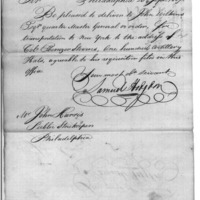 Sir
Be pleased to deliver to John Wilkins
Esqr quarter master General or order, for
transportation to New York to the address of
Colo. Ebenezer Stevens, One hundred Artillery
Hats, agreeable to his requisition filed in this
office.
Your most Obt Servant
Samuel Hodgdon
Mr John Harris
Public Storekeeper
Philadelphia